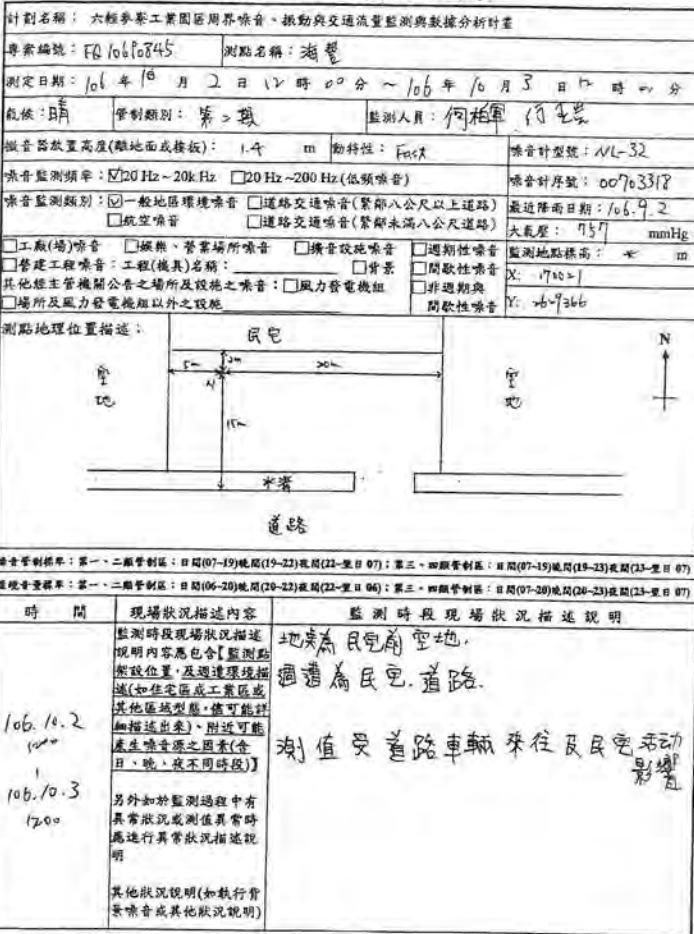 計劃名稱： 六輕麥寮工業園區周界噪音、振動與交通流量監測與數據分析計畫
專案編號：FQ106P0845 測點名稱：海豐
測定日期：106 年 10 月 2 日 12 時 00 分 ～ 106 年 10 月 3 日 12 時 00 分
氣候：晴 管制類別：第二類 監測人員：何柏軍
擴音器放置高度(離地面或樓板)： 1.4 m 動特性：Fast 噪音計型號：NL-32
噪音監測頻率：☑20 Hz～20k Hz □20 Hz～200 Hz (低頻噪音) 噪音計序號：00703318
噪音監測類別：☑一般地區環境噪音 □道路交通噪音(緊鄰八公尺以上道路) 最近降雨日期：106.9.2
□航空噪音 □道路交通噪音(緊鄰未滿八公尺道路) 大氣壓：757 mmHg
□工廠(場)噪音 □娛樂、營業場所噪音 □擴音設施噪音 □週期性噪音 監測地點標高： m
□營建工程噪音：工程(機具)名稱： □背景 □間歇性噪音 X: 170021
其他經主管機關公告之場所及設施之噪音：□風力發電機組 □非週期與
□場所及風力發電機組以外之設施 間歇性噪音 Y: 2629366
測點地理位置描述：
民宅
N
5m 2m 20m
空地
空地
N
15m
水溝
道路
噪音管制標準：第一、二類管制區：日間(07~19)晚間(19~22)夜間(22~翌日 07)；第三、四類管制區：日間(07~19)晚間(19~23)夜間(23~翌日 07)
環境音量標準：第一、二類管制區：日間(06~20)晚間(20~22)夜間(22~翌日 06)；第三、四類管制區：日間(07~20)晚間(20~23)夜間(23~翌日 07)
時 間 現場狀況描述內容 監 測 時 段 現 場 狀 況 描 述 說 明
監測時段現場狀況描述
說明內容應包含【監測點
架設位置，及週遭環境描
述(如住宅區或工業區或
其他區域型態，儘可能詳
細描述出來)、附近可能
產生噪音源之因素(含
日、晚、夜不同時段)】
另外如於監測過程中有
異常狀況或測值異常時
應進行異常狀況描述說
明
其他狀況說明(如執行背
景噪音或其他狀況說明)
106.10.2
1200
|
106.10.3
1200
地點為民宅前空地.
週遭為民宅.道路.
測值受道路車輛來往及民宅活動
影響